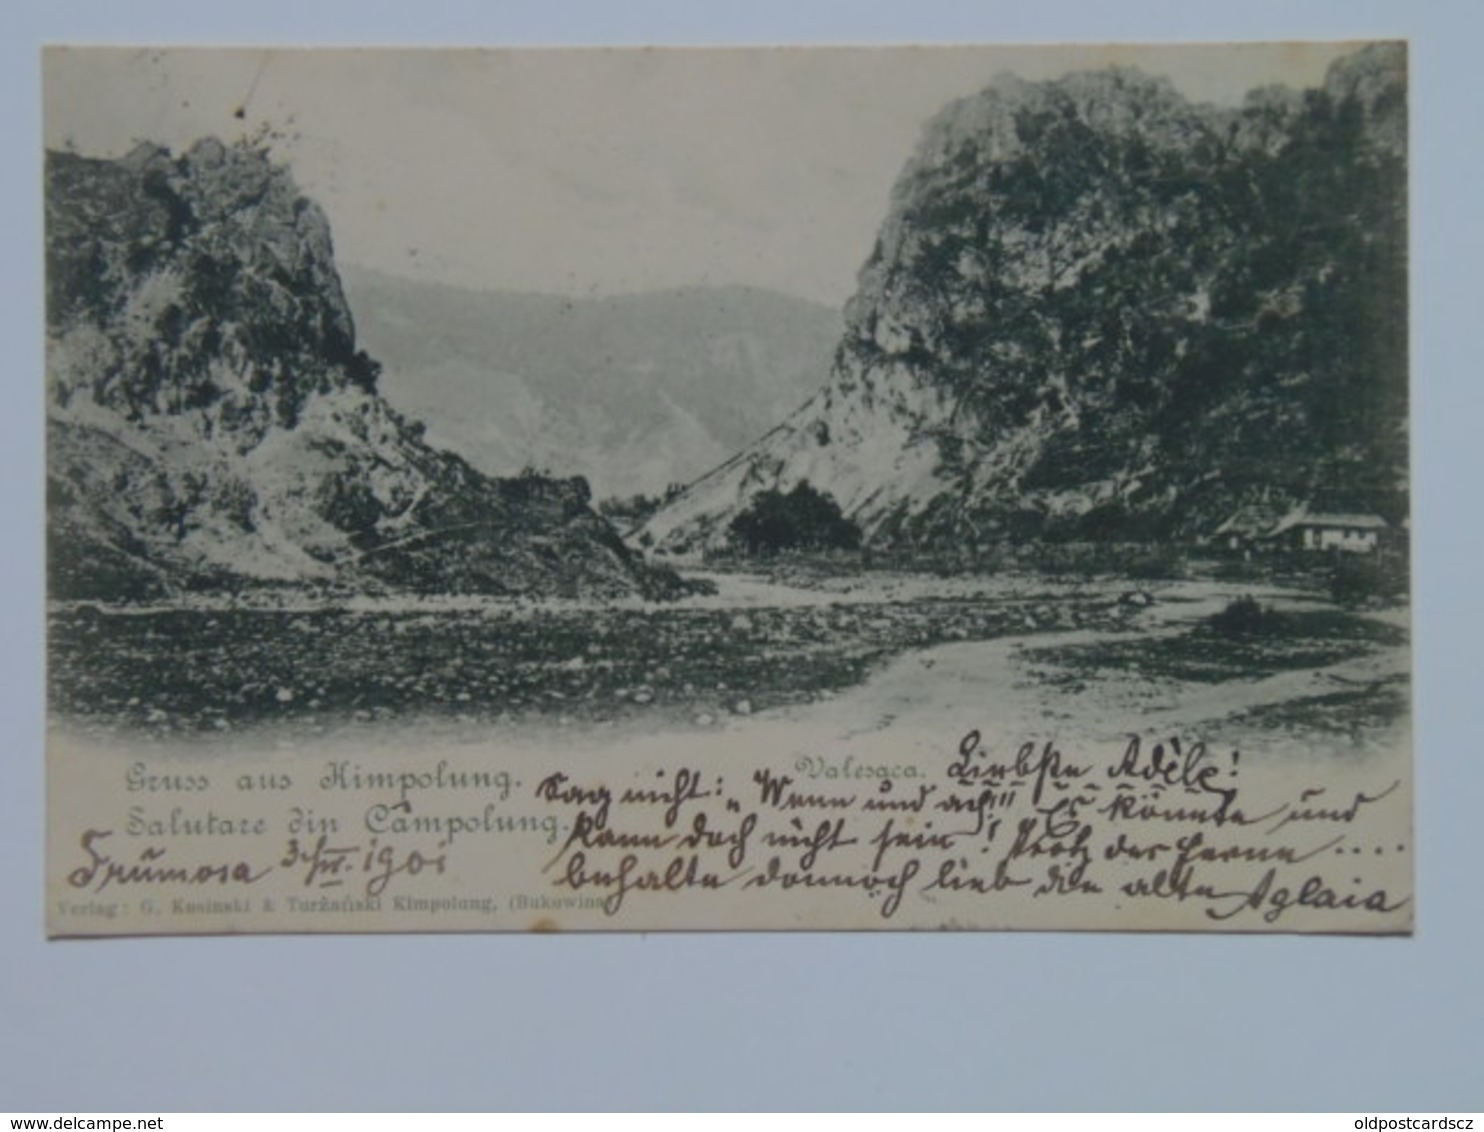 Gruss aus Kimpolung.
Salutare din Câmpolung.
Valesaca.
Frumosa 3/IV. 1901
Liebste Adèle!
Sag nicht: „Wenn und ach!!!" Es könnte und
kann doch nicht sein! Trotz der Ferne ....
behalte dennoch lieb die alte Aglaia
Verlag: G. Kosinski & Turžański Kimpolung, (Bukowina)
www.delcampe.net
oldpostcardscz